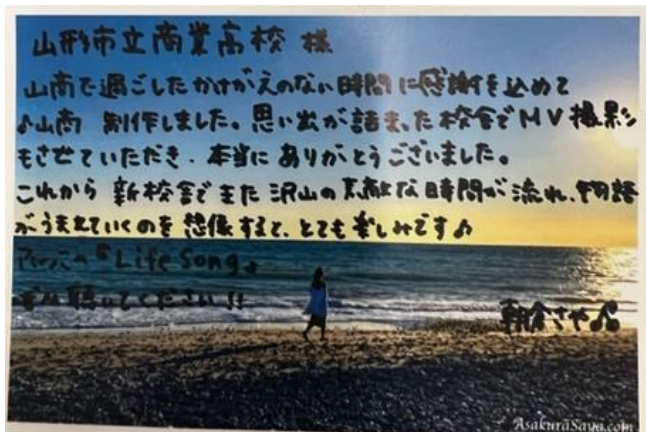 山形市立商業高校 様
山商で過ごしたかけがえのない時間に感謝を込めて
♪山商 制作しました。思い出が詰まった校舎でMV撮影
もさせていただき、本当にありがとうございました。
これから新校舎でまた沢山の素敵な時間が流れ、物語
がうまれていくのを想像すると、とても楽しみです♪
『Life Song』
ぜひ聴いてください!!
朝倉さや
AsakuraSaya.com